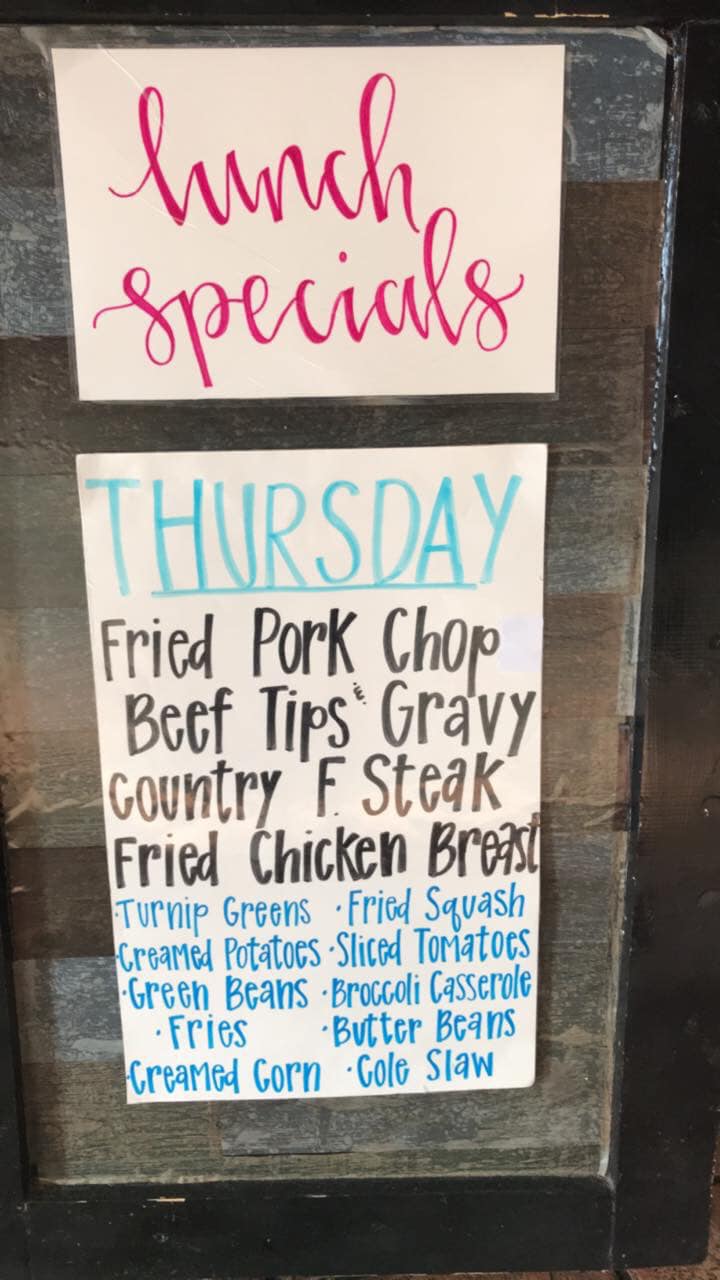 lunch
specials
THURSDAY
Fried Pork Chop
Beef Tips & Gravy
Country F. Steak
Fried Chicken Breast
·Turnip Greens ·Fried Squash
·Creamed Potatoes ·Sliced Tomatoes
·Green Beans ·Broccoli Casserole
·Fries ·Butter Beans
·Creamed Corn ·Cole Slaw